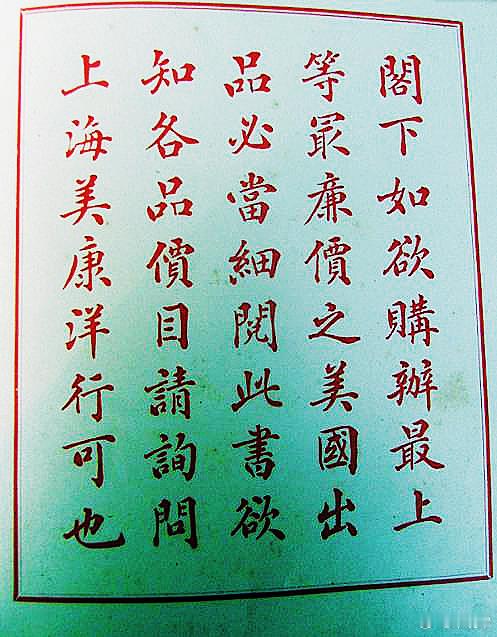 閣下如欲購辦最上
等最廉價之美國出
品必當細閱此書欲
知各品價目請詢問
上海美康洋行可也